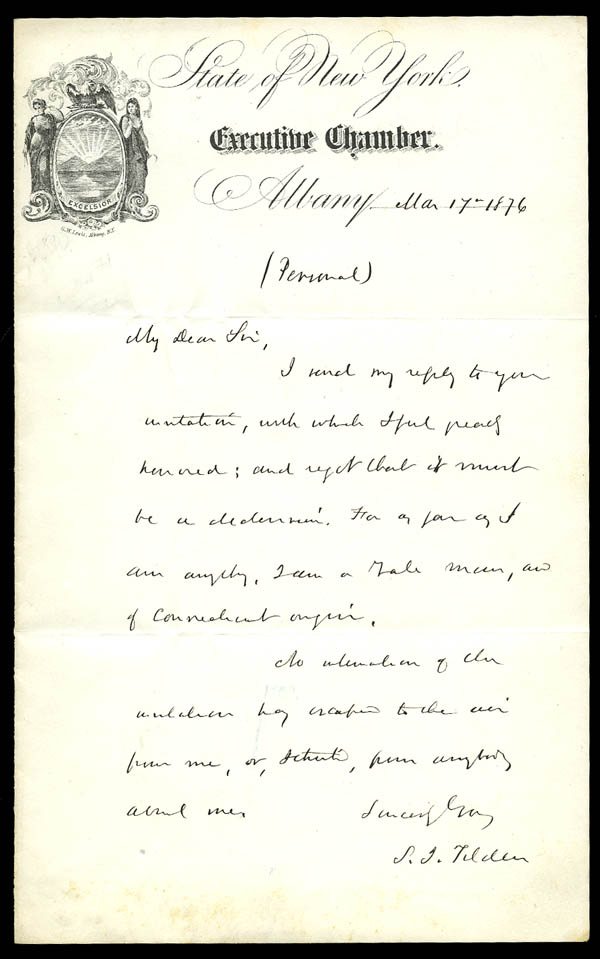 State of New York.
Executive Chamber.
EXCELSIOR
Albany Mar 17th 1876
G.W. Lewis, Albany, N.Y.
(Personal)
My Dear Sir,
I send my reply to your
invitation, with which I feel greatly
honored; and regret that it must
be a declension. For as far as I
am anything, I am a Yale man, and
of Connecticut origin.
No intimation of the
invitation has escaped to the air
from me, or, I think, from anybody
about me.
Sincerely Yours
S. J. Tilden